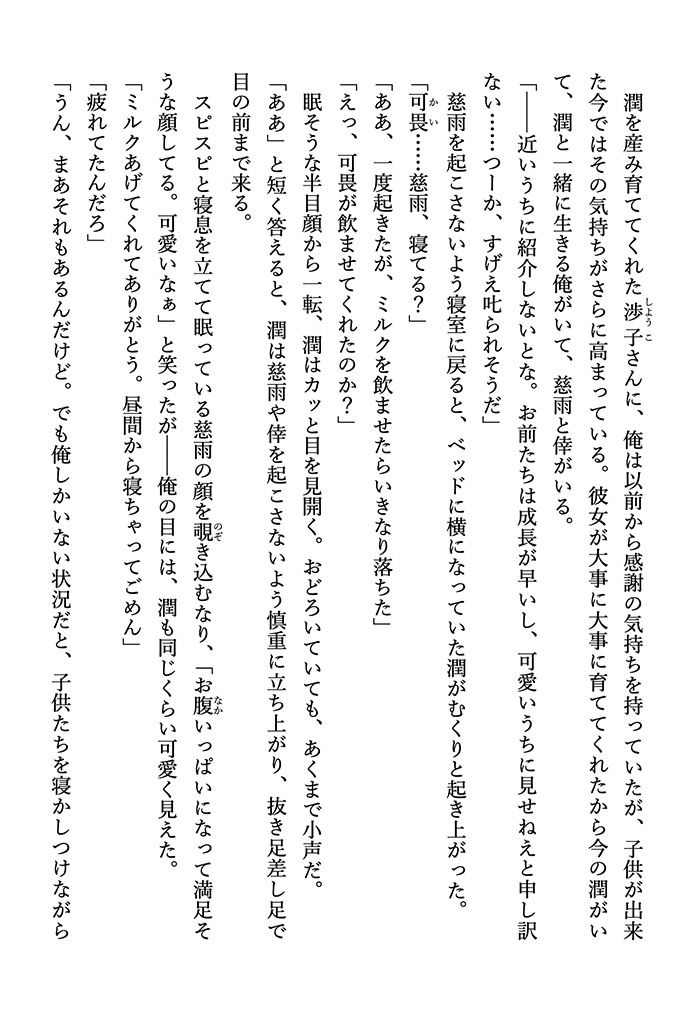 潤を産み育ててくれた渉子さんに、俺は以前から感謝の気持ちを持っていたが、子供が出来
た今ではその気持ちがさらに高まっている。彼女が大事に大事に育ててくれたから今の潤がい
て、潤と一緒に生きる俺がいて、慈雨と倖がいる。
「――近いうちに紹介しないとな。お前たちは成長が早いし、可愛いうちに見せねえと申し訳
ない……つーか、すげえ叱られそうだ」
慈雨を起こさないよう寝室に戻ると、ベッドに横になっていた潤がむくりと起き上がった。
「可畏……慈雨、寝てる？」
「ああ、一度起きたが、ミルクを飲ませたらいきなり落ちた」
「えっ、可畏が飲ませてくれたのか？」
眠そうな半目顔から一転、潤はカッと目を見開く。おどろいていても、あくまで小声だ。
「ああ」と短く答えると、潤は慈雨や倖を起こさないよう慎重に立ち上がり、抜き足差し足で
目の前まで来る。
スピスピと寝息を立てて眠っている慈雨の顔を覗き込むなり、「お腹いっぱいになって満足そ
うな顔してる。可愛いなぁ」と笑ったが――俺の目には、潤も同じくらい可愛く見えた。
「ミルクあげてくれてありがとう。昼間から寝ちゃってごめん」
「疲れてたんだろ」
「うん、まあそれもあるんだけど。でも俺しかいない状況だと、子供たちを寝かしつけながら